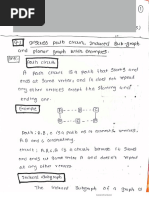 1
Discuss path circuit, Induced Sub-graph
and planar graph with examples.
Path circuit
A Path circuit is a path that starts and
ends at Same vertex and is does not repeat
any other vertices except the starting and
ending one.
Example
Path: A,B,C is a path as it starts at A and
ends at C without repeating any vertices
circuit: A,B,C,A is a circuit because it starts
and ends at Same vertex A and does not repeat
any vertices in between.
Induced Subgraph
The Induced Subgraph of a graph is